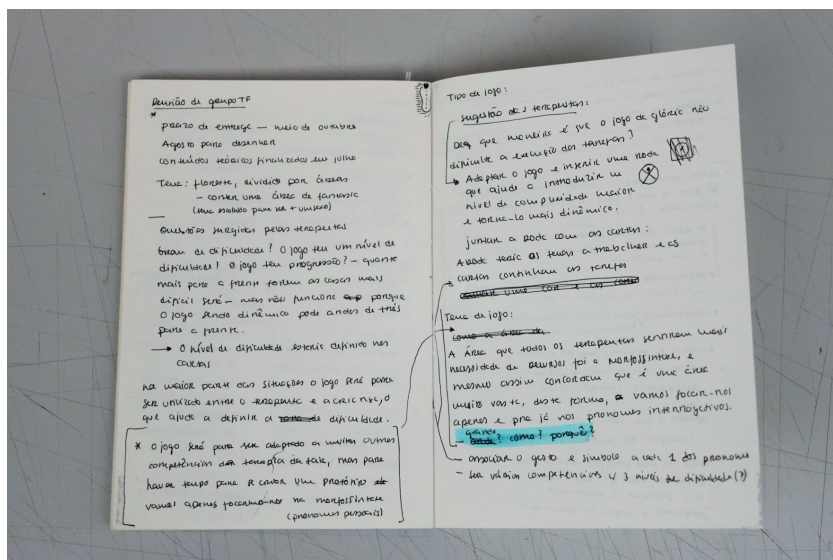 Reunião de grupo TF
*
prazo de entrega — meio de outubro
Agosto para desenhar
conteúdos teóricos finalizados em julho
Tema: floresta, dividido por áreas
- conter uma área de fantasia
Questões surgidas pelas terapeutas
Gran de dificuldade? O jogo tem um nível de
dificuldade? O jogo tem progressão? - quanto
mais para a frente forem as casas mais
difícil será - mas não funciona porque
O jogo sendo dinâmico pode andar de trás
para a frente.
→ O nível de dificuldade estaria definido nas
cartas
na maior parte das situações o jogo será para
ser utilizado entre o terapeuta e a criança, o
que ajuda a definir a dificuldade.
* O jogo será para ser adaptado a muitas outras
competências da terapia da fala, mas para
haver tempo para criar um protótipo
vamos apenas focarmo-nos na morfossintaxe
(pronomes pessoais)
Tipo de jogo:
sugestão das terapeutas:
De que maneira é que o jogo da glória não
dificulta a execução das tarefas?
→ Adaptar o jogo e inserir uma roda
que ajuda a introduzir um
nível de complexidade maior
e torna-lo mais dinâmico.
juntar a roda com as cartas:
A Roda teria os temas a trabalhar e as
cartas continham as tarefas
Tema de jogo:
A Área que todos os terapeutas sentiram mais
necessidade de recursos foi a morfossintaxe, e
mesmo assim concordam que é uma área
muito vasta, desta forma, vamos focar-nos
apenas e pra já nos pronomes interrogativos.
- quando? como? porquê?
- associar o gesto e símbolo a cada 1 dos pronomes
- ser várias competências c/ 3 níveis de dificuldade (?)